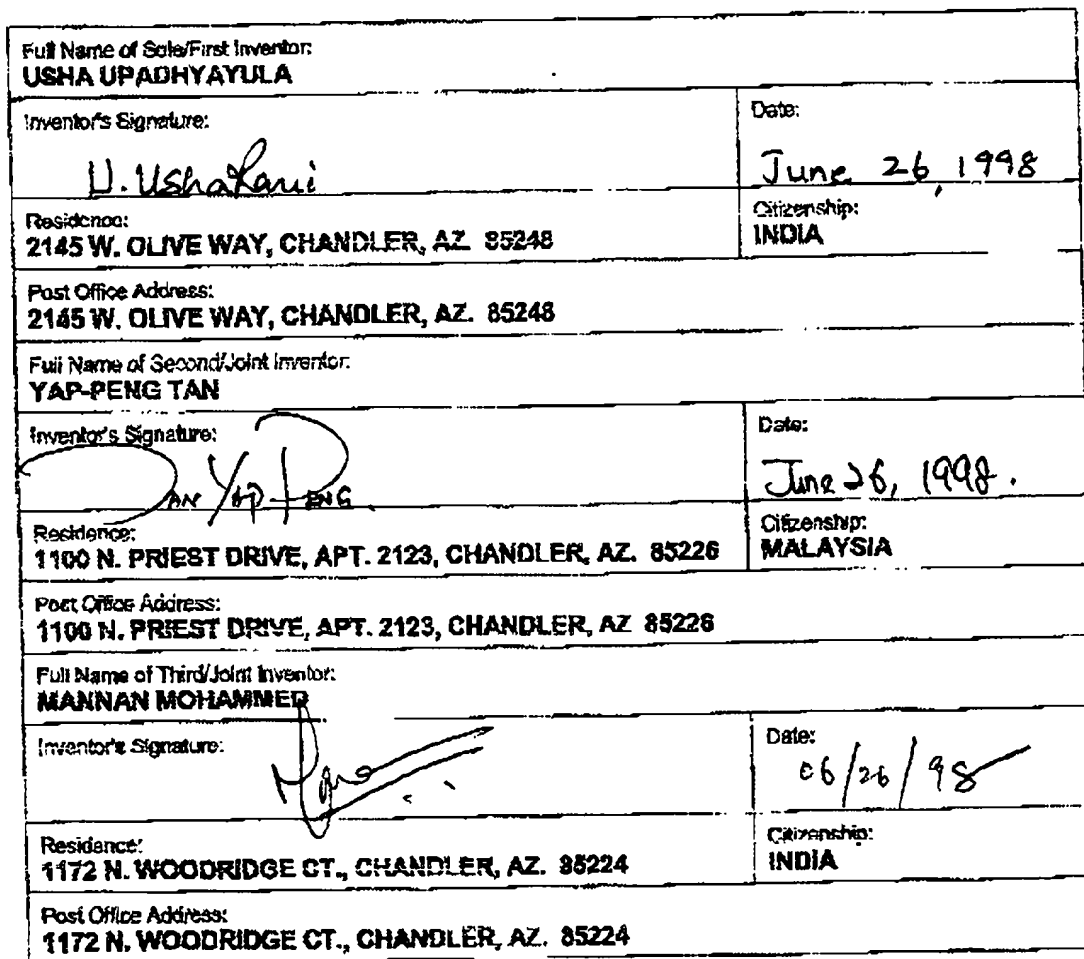 Full Name of Sole/First Inventor:
USHA UPADHYAYULA
Inventor's Signature:
U. UshaRani
Date:
June 26, 1998
Residence:
2145 W. OLIVE WAY, CHANDLER, AZ. 85248
Citizenship:
INDIA
Post Office Address:
2145 W. OLIVE WAY, CHANDLER, AZ. 85248
Full Name of Second/Joint Inventor:
YAP-PENG TAN
Inventor's Signature:
TAN YAP PENG
Date:
June 26, 1998.
Residence:
1100 N. PRIEST DRIVE, APT. 2123, CHANDLER, AZ. 85226
Citizenship:
MALAYSIA
Post Office Address:
1100 N. PRIEST DRIVE, APT. 2123, CHANDLER, AZ 85226
Full Name of Third/Joint Inventor:
MANNAN MOHAMMED
Inventor's Signature:
Date:
06/26/98
Residence:
1172 N. WOODRIDGE CT., CHANDLER, AZ. 85224
Citizenship:
INDIA
Post Office Address:
1172 N. WOODRIDGE CT., CHANDLER, AZ. 85224